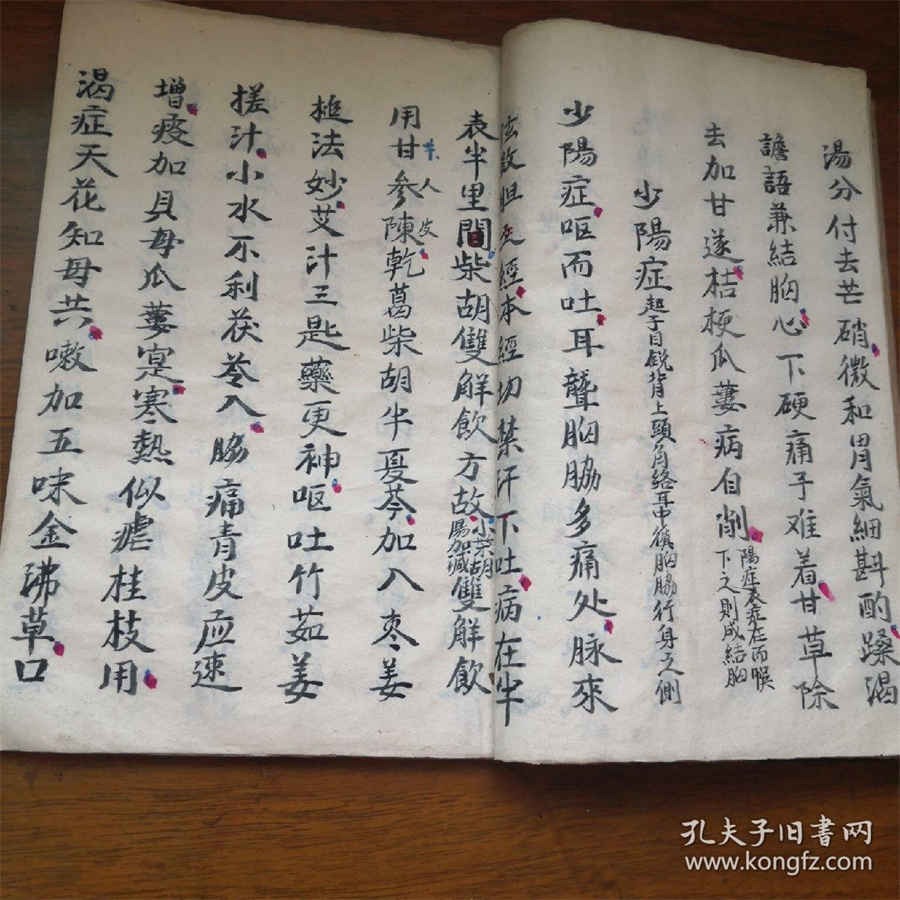 湯分付去芒硝微和胃氣細斟酌躁渴
譫語兼結胸心下硬痛手难着甘草除
去加甘遂桔梗瓜蔞病自削陽症表症在而喉
下之則成結胸
少陽症起于目銳背上頭角絡耳中循胸脇行身之側
少陽症呕而吐耳聾胸脇多痛处脉來
弦数胆経本經切禁汗下吐病在半
表半里間柴胡雙解飲方故小柴胡湯加减雙解飲
用甘參陳乾葛柴胡半夏芩加入枣姜
人皮
槌法妙艾汁三匙藥更神呕吐竹茹姜
搓汁小水不利茯苓入脇痛青皮应速
增痰加貝母瓜蔞寔寒熱似瘧桂枝用
渴症天花知母共嗽加五味金沸草口
孔夫子旧書网
www.kongfz.com